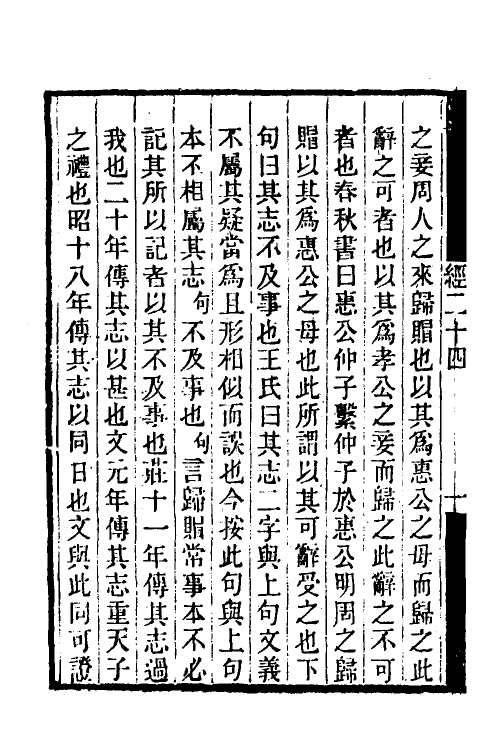 經二十四
一
之妾周人之來歸賵也以其爲惠公之母而歸之此
辭之可者也以其爲孝公之妾而歸之此辭之不可
者也春秋書曰惠公仲子繫仲子於惠公明周之歸
賵以其爲惠公之母也此所謂以其可辭受之也下
句曰其志不及事也王氏曰其志二字與上句文義
不屬其疑當爲且形相似而誤也今按此句與上句
本不相屬其志句不及事也句言歸賵常事本不必
記其所以記者以其不及事也莊十一年傳其志過
我也二十年傳其志以甚也文元年傳其志重天子
之禮也昭十八年傳其志以同日也文與此同可證